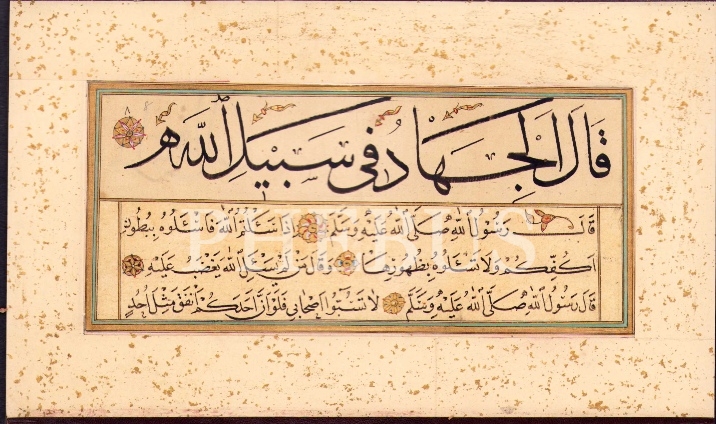 قَالَ الْجِهَادُ فِي سَبِيلِ اللّٰهِ
قَالَ رَسُولُ اللّٰهِ صَلَّى اللّٰهُ عَلَيْهِ وَسَلَّمَ اِذَا سَئَلْتُمُ اللّٰهَ فَاسْئَلُوهُ بِبُطُونِ
اَكُفِّكُمْ وَلَا تَسْئَلُوهُ بِظُهُورِهَا وَقَالَ مَنْ لَمْ يَسْئَلِ اللّٰهَ يَغْضَبْ عَلَيْهِ
قَالَ رَسُولُ اللّٰهِ صَلَّى اللّٰهُ عَلَيْهِ وَسَلَّمَ لَا تَسُبُّوا اَصْحَابِي فَلَوْ اَنَّ اَحَدَكُمْ اَنْفَقَ مِثْلَ اُحُدٍ
PHEBUS